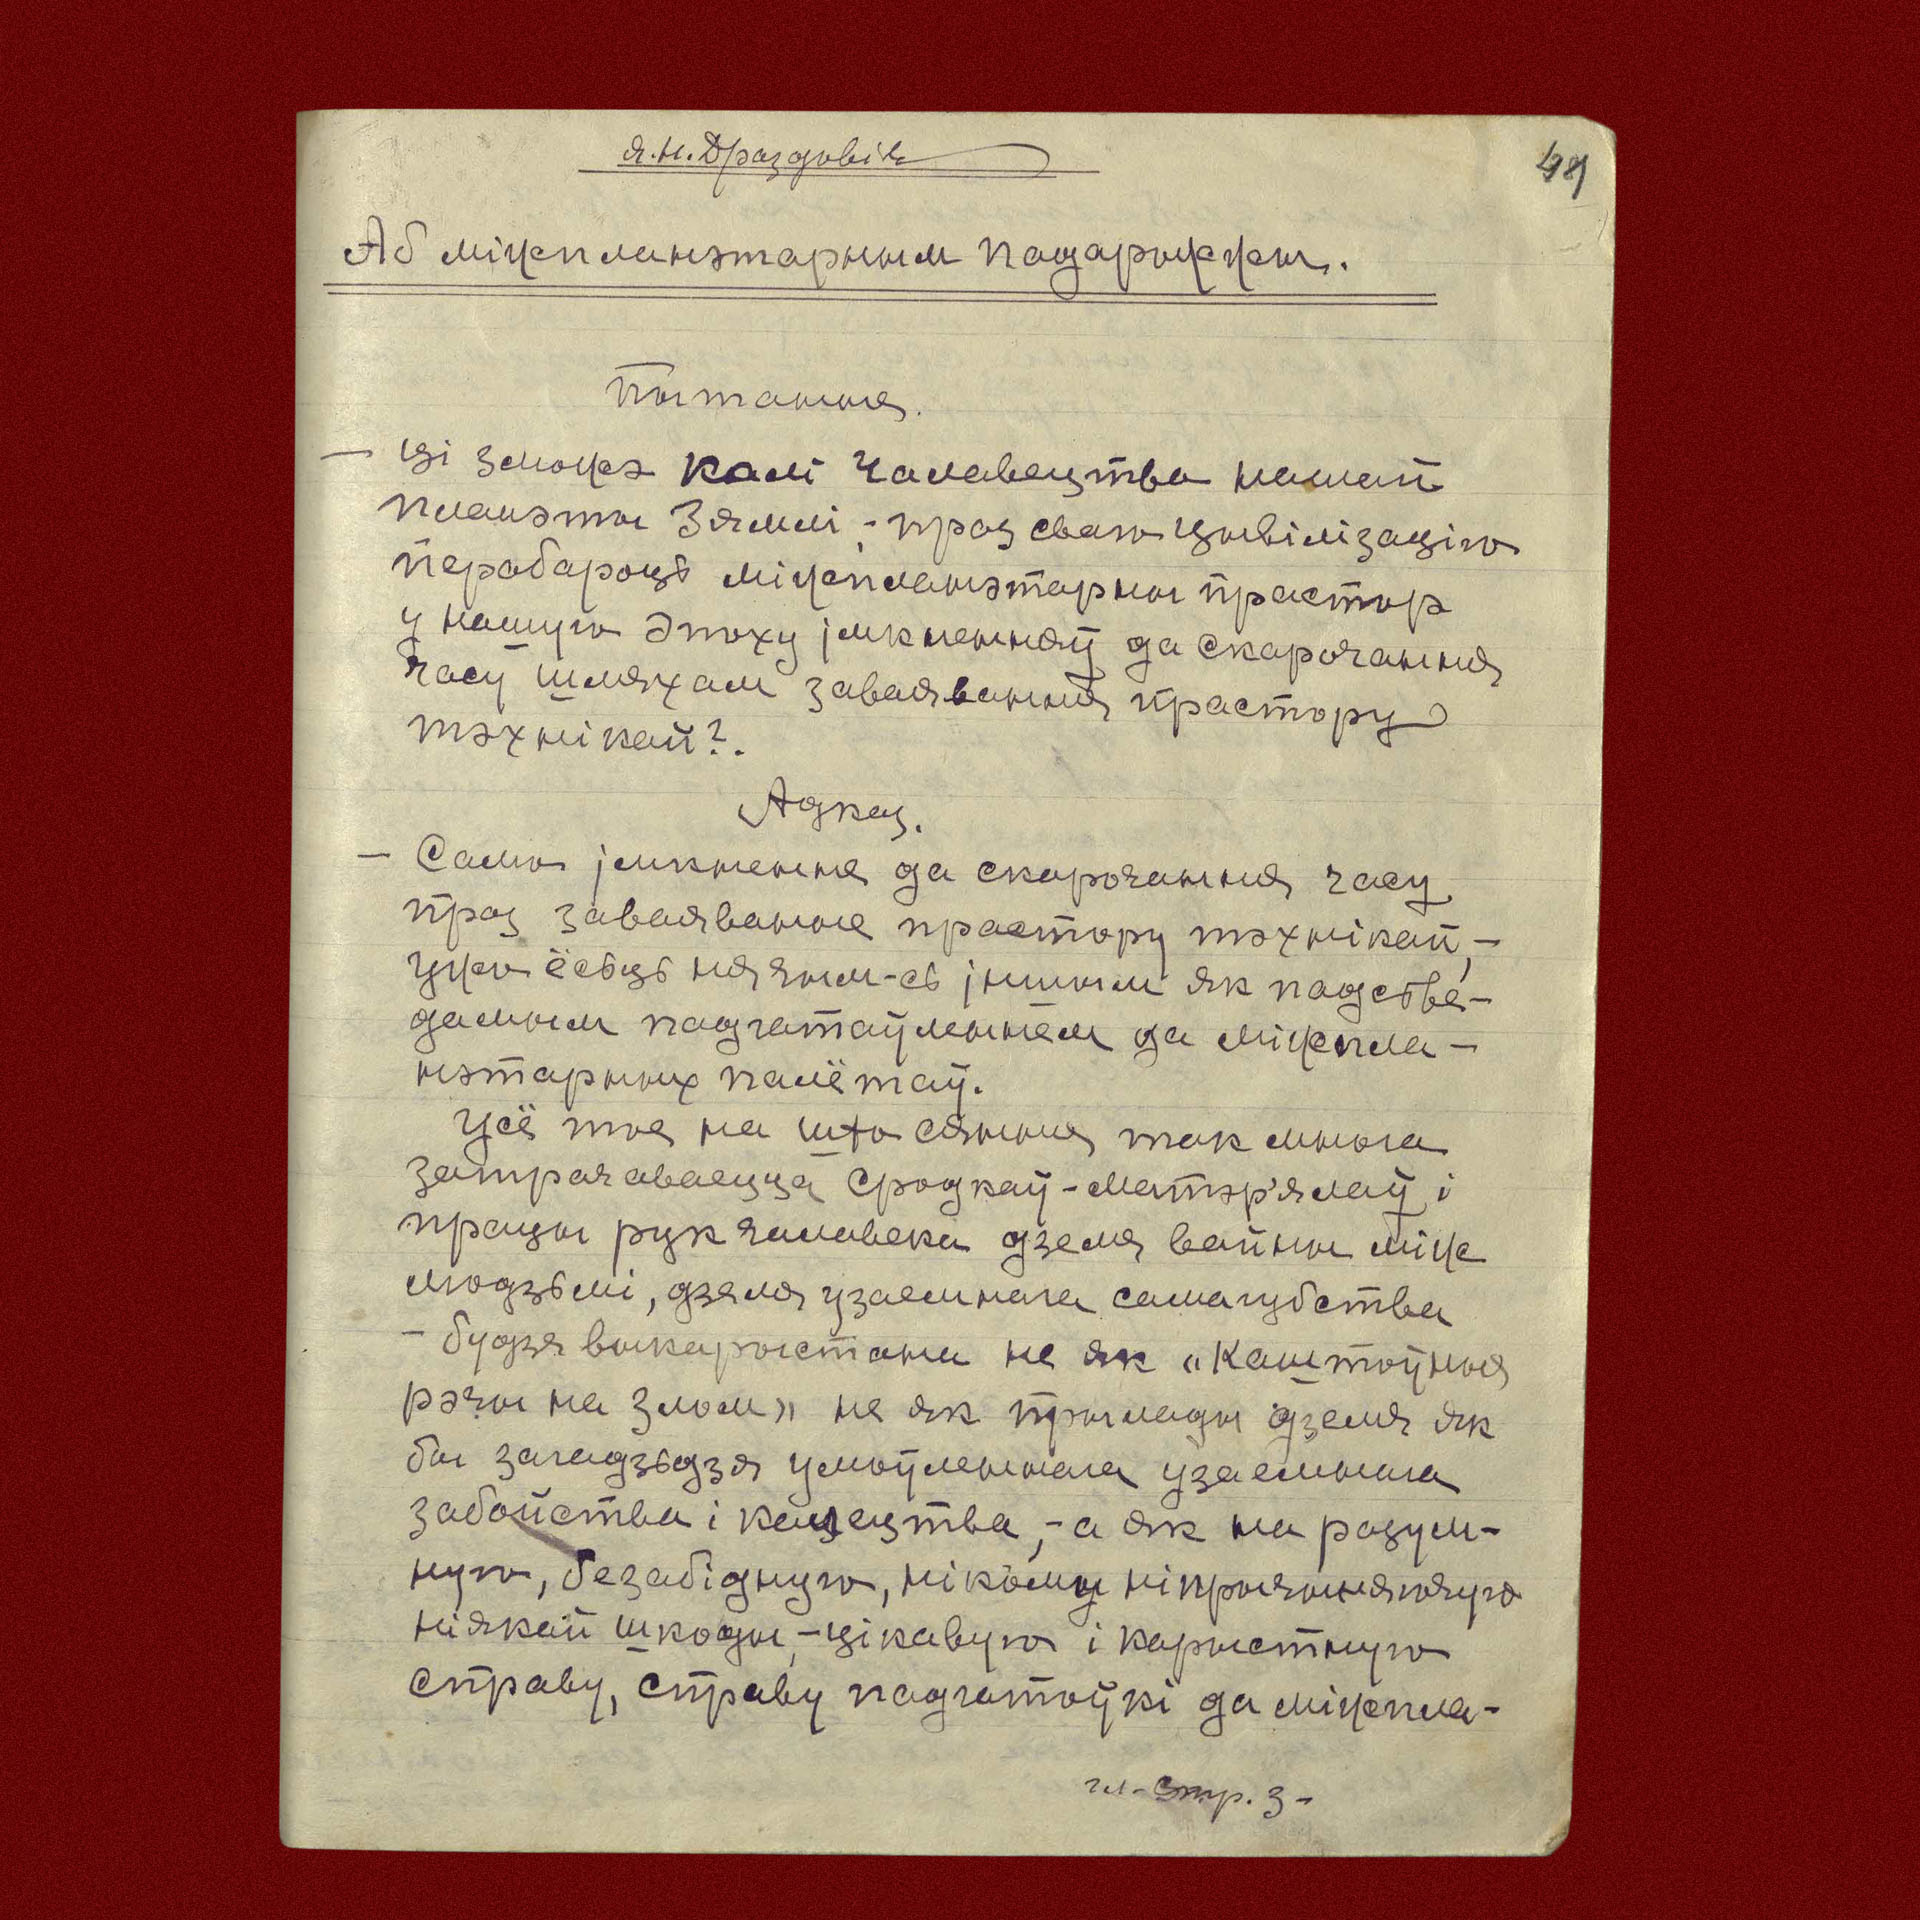 Я.Н.Драздовіч
48
Аб міжплянэтарным падарожжы.
Пытаньне.
— Ці зможэ калі чалавецтва нашай
плянэты Зямлі, - праз сваю цывілізацію
перабароць міжплянэтарны прастор
у нашую эпоху імкненняў да скарочання
часу шляхам заваявання прастору
тэхнікай?.
Адказ.
— Само імкненне да скарочання часу
праз заваяванне прастору тэхнікай, -
ужо ёсьць ня чым-сь іншым як падсьве-
дамым падгатаўленнем да міжпла-
нэтарных палётаў.
Усё тое на што сяння так многа
затрачаваецца сродкаў-матэр'ялаў і
працы рук чалавека дзеля вайны між
людзьмі, дзеля узаемнага самагубства
- будзя выкарыстана не як «каштоўныя
рэчы на злом» не як прылады дзеля як
бы загадзьдзя умоўленнага узаемнага
забойства і калецтва, - а як на разум-
ную, безабідную, нікому ніпрычыняючую
ніякай шкоды, - цікавую і карыстную
справу, справу падгатоўкі да міжпла-
гл- стр. 3 -